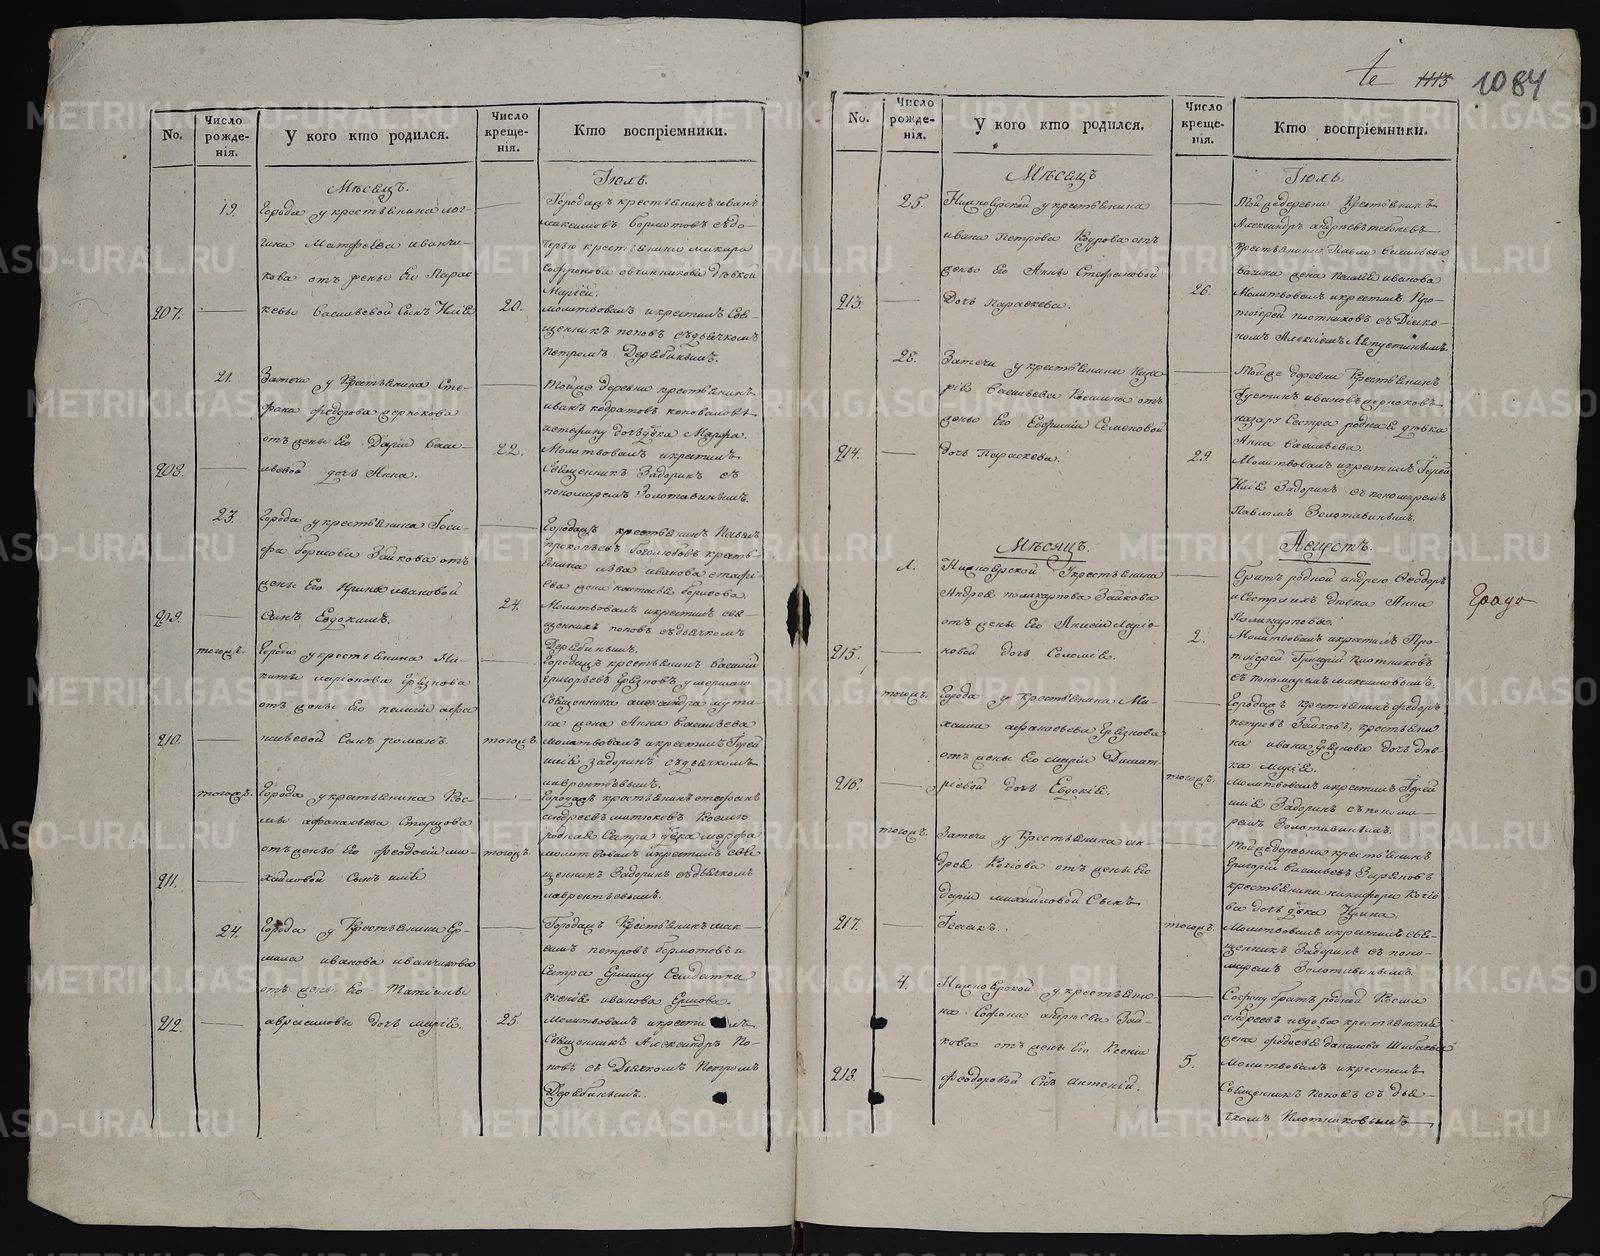 1113 1084
No.
Число рожде-нія.
У кого кто родился.
Число креще-нія.
Кто воспріемники.
Мѣсецъ.
Іюль.
19.
Города у крестьенина лог-
гина Матфеева иванчи-
кова отъ жены Его Парас
207.
кевы васильевой Сынъ Иліе
20.
Городацъ крестьенинъ иванъ
максимовъ бормотовъ съдо-
черью крестьенина макара
софронова овчинникова дѣвкой
Маріей.
молитвовалъ икрестилъ Свя-
щенникъ поповъ съдьечкомъ
Петромъ Дерябинымъ.
21.
Затечи у Крестьенина Сте-
фана федорова
отъ жены Его Даріи васи-
208.
льевой дочь Анна.
22.
Тойже деревни крестьенинъ
иванъ кодратовъ коноваловъ
истефану дочь дѣвка Марфа.
Молитвовалъ икрестилъ
Священникъ Задоринъ съ
пономаремъ Золотавинымъ.
23.
Города у крестьенина Іоси-
фа борисова Зайкова отъ
жены Его Ирины ивановой
209.
сынъ Евдокимъ.
24.
Городацъ крестьенинъ
прокопьевъ боголюбовъ кресть-
енина лѣва иванова
ева жена настасье борисова.
Молитвовалъ икрестилъ све-
щенникъ поповъ съдьечкомъ
Дерябинымъ.
тогожъ.
Города у крестьенина Ни-
киты ларіонова Грезнова
отъ жены Его пелагіи афа
210.
насьевой Сынъ романъ.
тогожъ.
Городацъ крестьенинъ василій
григорьевъ Грезновъ, умершаго
Священника александра
жена Анна васильева
молитвовалъ икрестилъ Іерей
иліе задоринъ съдьечкомъ
лаврентьевымъ.
тогожъ.
Города у крестьенина Кос-
мы афанасьева Старцова
отъ жены Его феодосіи ми-
211.
хайловой Сынъ иліе
тогожъ.
Городацъ крестьенинъ стефанъ
андреевъ матюковъ Космы
роднае Сестра дѣвка марфа
молитвовалъ икрестилъ све
щенникъ Задоринъ съдьечкомъ
лаврентьевымъ.
24.
Города у Крестьенина Ер-
мила иванова иванчикова
отъ жены Его Татіаны
212.
аврамовы дочь маріе.
25.
Городацъ Крестьенинъ мак-
симъ петровъ бормотовъ и
Сестра Ермилу Салдатка
Ксеніе иванова Ершова.
Молитвовалъ икрестилъ
Священникъ Александръ По-
повъ съ Дьечкомъ Петромъ
Дерябинымъ.
No.
Число рожде-нія.
У кого кто родился.
Число креще-нія.
Кто воспріемники.
Мѣсецъ
Іюль.
25.
Нижноярской у крестьенина
ивана Петрова Кузрова отъ
жены Его Анны Стефановой
213.
Дочь Параскева.
26.
Тойжедеревни Крестьенинъ
Александръ андреевъ
Крестьенина Павла васильева
жена Пелагіе иванова
Молитвовалъ икрестилъ Про-
тоіерей плотниковъ съ Діяко-
номъ Алексіемъ Лепустинымъ.
28.
Затечи у крестьенина Наза-
ріе васильева Кошкина отъ
жены Его Евфиміи Семеновой
214.
дочь Параскева.
29.
Тойже деревни Крестьенинъ
Густинъ ивановъ
назару Сестра роднае дѣвка
Анна васильева.
Молитвовалъ икрестилъ Іерей
Иліе Задоринъ съ пономаремъ
Павломъ Золотавинымъ.
Мѣсяцъ.
Августъ.
1.
Нижноярской Укрестьенина
Андрея поликарпова Зайкова
отъ жены Его Анисіи Ларіо-
215.
новой дочь Соломіе.
2.
братъ родной андрею Ѳеодоръ
исестра ихъ дѣвка Анна
Поликарповы.
Молитвовалъ икрестилъ Про-
тоіерей Григорій плотниковъ
съ пономаремъ максимовымъ.
тогожъ.
Города у Крестьенина Ми-
хаила афанасьева Грезнова
отъ жены Его маріи Димит-
216.
ріевой дочь Евдокіе.
тогожъ.
Городацъ крестьенинъ федоръ
петровъ Зайковъ, крестьени
на ивана Грезнова дочь дѣв-
ка маріе.
молитвовалъ икрестилъ Іерей
иліе Задоринъ съ поно-
ремъ Золотавинымъ.
тогожъ.
Затечи у Крестьенина ан-
дрея отъ жены Его
Даріи михайловой Сынъ
217.
Ісаакъ.
тогожъ.
Тойжедеревни крестьенинъ
Григорій васильевъ
крестьенина никифора
ва дочь дѣвка Ирина.
Молитвовалъ икрестилъ све-
щенникъ Задоринъ съ поно-
маремъ Золотавинымъ.
4.
Нижноярской у крестьени-
на Софона андреева Зай-
кова отъ жены Его Ксеніи
218.
феодоровой Сынъ антоній.
5.
Софону братъ родной Косма
андреевъ крестьенская
жена федосье данилова
Молитвовалъ икрестилъ
Священникъ Поповъ съ дье-
чкомъ Плотниковымъ